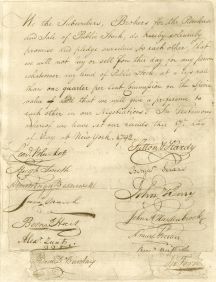 We the Subscribers, Brokers for the Purchase
and Sale of Public Stock, do hereby solemnly
promise and pledge ourselves to each other, that
we will not buy or sell from this day for any person
whatsoever any kind of Public Stock at a less rate
than one quarter per Cent Commission on the Specie
value &
that we will give a preference to
each other in our Negotiations. In Testimony
whereof we have set our hands this 17th day
of May at New York, 1792
Leond Bleecker
Hugh Smith
Armstrong & Barnewall
Samuel March
Bernard Hart
Alexr Zuntz
Sutton & Hardy
Benjn Seixas
John Henry
John A Hardenbrook
Amos Beebe